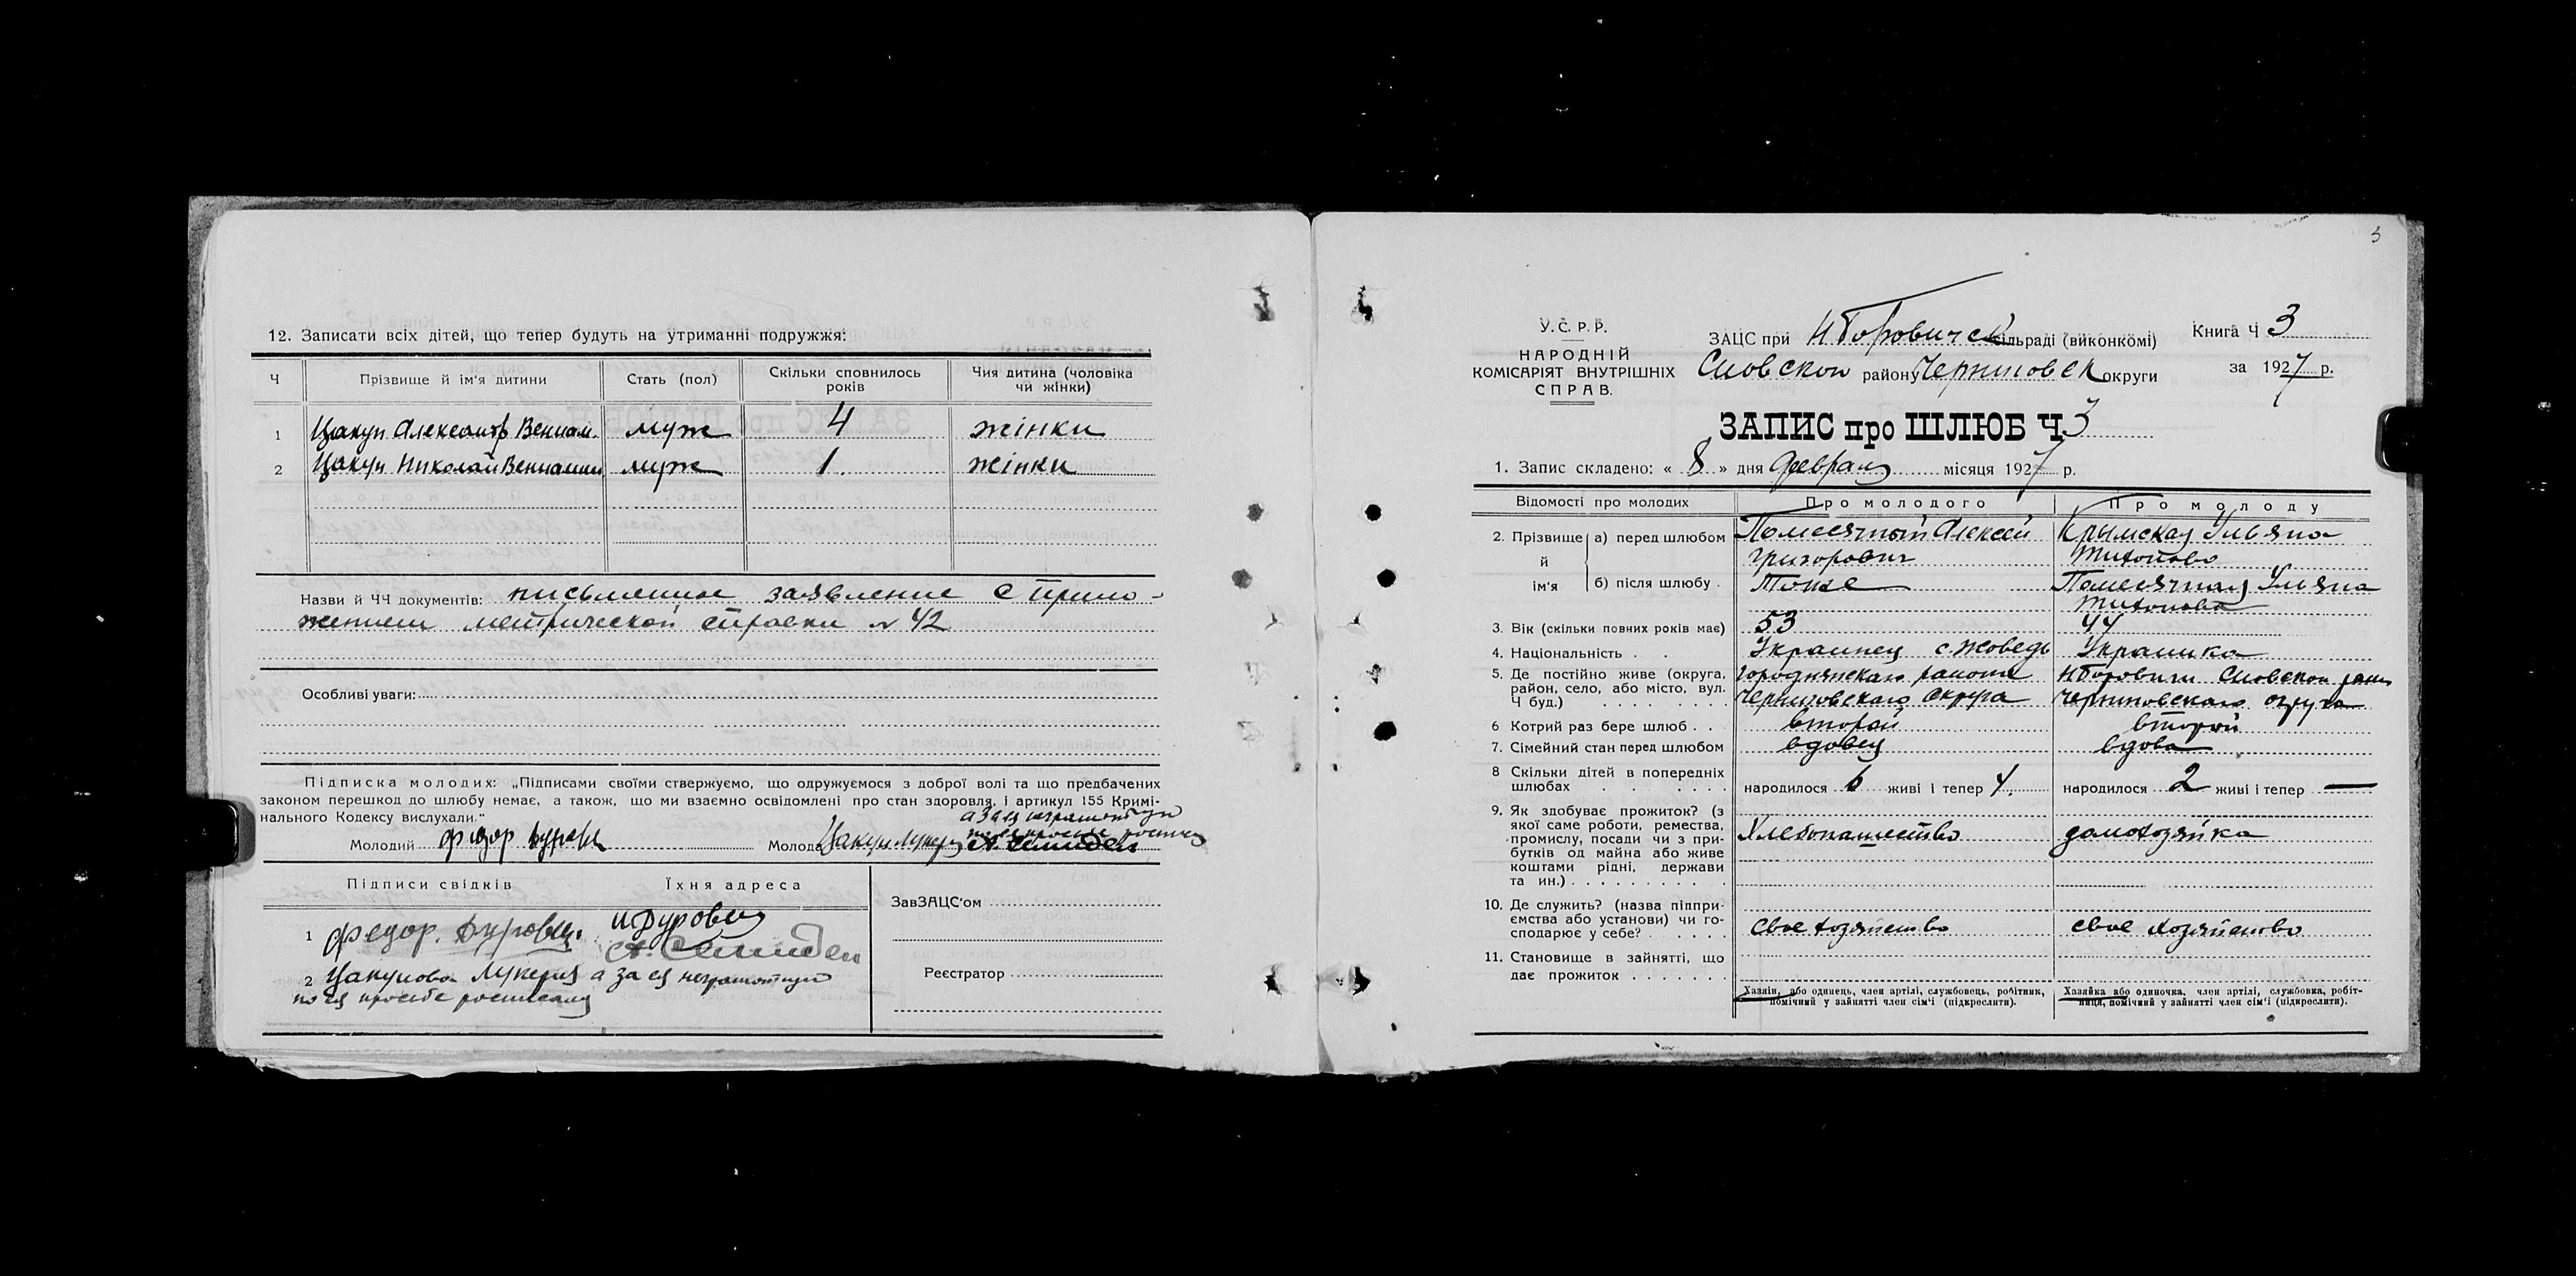 12. Записати всіх дітей, що тепер будуть на утриманні подружжя:
Ч Прізвище й ім'я дитини Стать (пол) Скільки сповнилось років Чия дитина (чоловіка чи жінки)
1 Цакун Александр Вениам. муж 4 жінки
2 Цакун Николай Вениамин муж 1. жінки
Назви й ЧЧ документів: письменное заявление с прило-
жением метрической справки № 42
Особливі уваги:
Підписка молодих: „Підписами своїми ствержуємо, що одружуємося з доброї волі та що предбачених
законом перешкод до шлюбу немає, а також, що ми взаємно освідомлені про стан здоровля, і артикул 155 Кримі-
нального Кодексу вислухали."
а за ея неграмотную
Молодий Федор Молода Цакун Лукерия
Підписи свідків Їхня адреса
1 Федор.
2 Цакунова Лукерия а за ея неграмотную
по ея просьбе
ЗавЗАЦС'ом
Реєстратор
3
У.С.Р.Р.
НАРОДНІЙ
КОМІСАРІЯТ ВНУТРІШНІХ
СПРАВ.
ЗАЦС при НБоровичск сільраді (виконкомі) Книга Ч 3
Сновском району Черниговск округи за 1927 р.
ЗАПИС про ШЛЮБ Ч 3
1. Запис складено: « 8 » дня февраля місяця 1927 р.
Відомості про молодих Про молодого Про молоду
2. Прізвище й ім'я а) перед шлюбом Помесячный Алексей Григорович Крымская Ульяна Тихонова
б) після шлюбу. Тоже Помесячная Уляна Тихонова
3. Вік (скільки повних років має) 53 44
4. Національність . . Украинец с. Жоведь Украинка
5. Де постійно живе (округа, Городнянскаго района НБоровичи Сновском
район, село, або місто, вул. Черниговскаго округа Черниговскаго округа
Ч буд.) . . . .
6 Котрий раз бере шлюб . . второй второй
7. Сімейний стан перед шлюбом вдовец вдова
8 Скільки дітей в попередніх
шлюбах . . . . народилося 6 живі і тепер 4. народилося 2 живі і тепер —
9. Як здобуває прожиток? (з
якої саме роботи, ремества,
промислу, посади чи з при- Хлебопашество домохозяйка
бутків од майна або живе
коштами рідні, держави
та ин.) . . . . . . . . .
10. Де служить? (назва підпри-
ємства або установи) чи го-
сподарює у себе? . . . . свое хозяйство свое хозяйство
11. Становище в зайнятті, що
дає прожиток . . . . . . .
Хазяїн, або одинець, член артілі, службовець, робітник, помічний у зайнятті член сім'ї (підкреслити).
Хазяйка або одиночка, член артілі, службовка, робіт-
ниця, помічний у зайнятті член сім'ї (підкреслити).